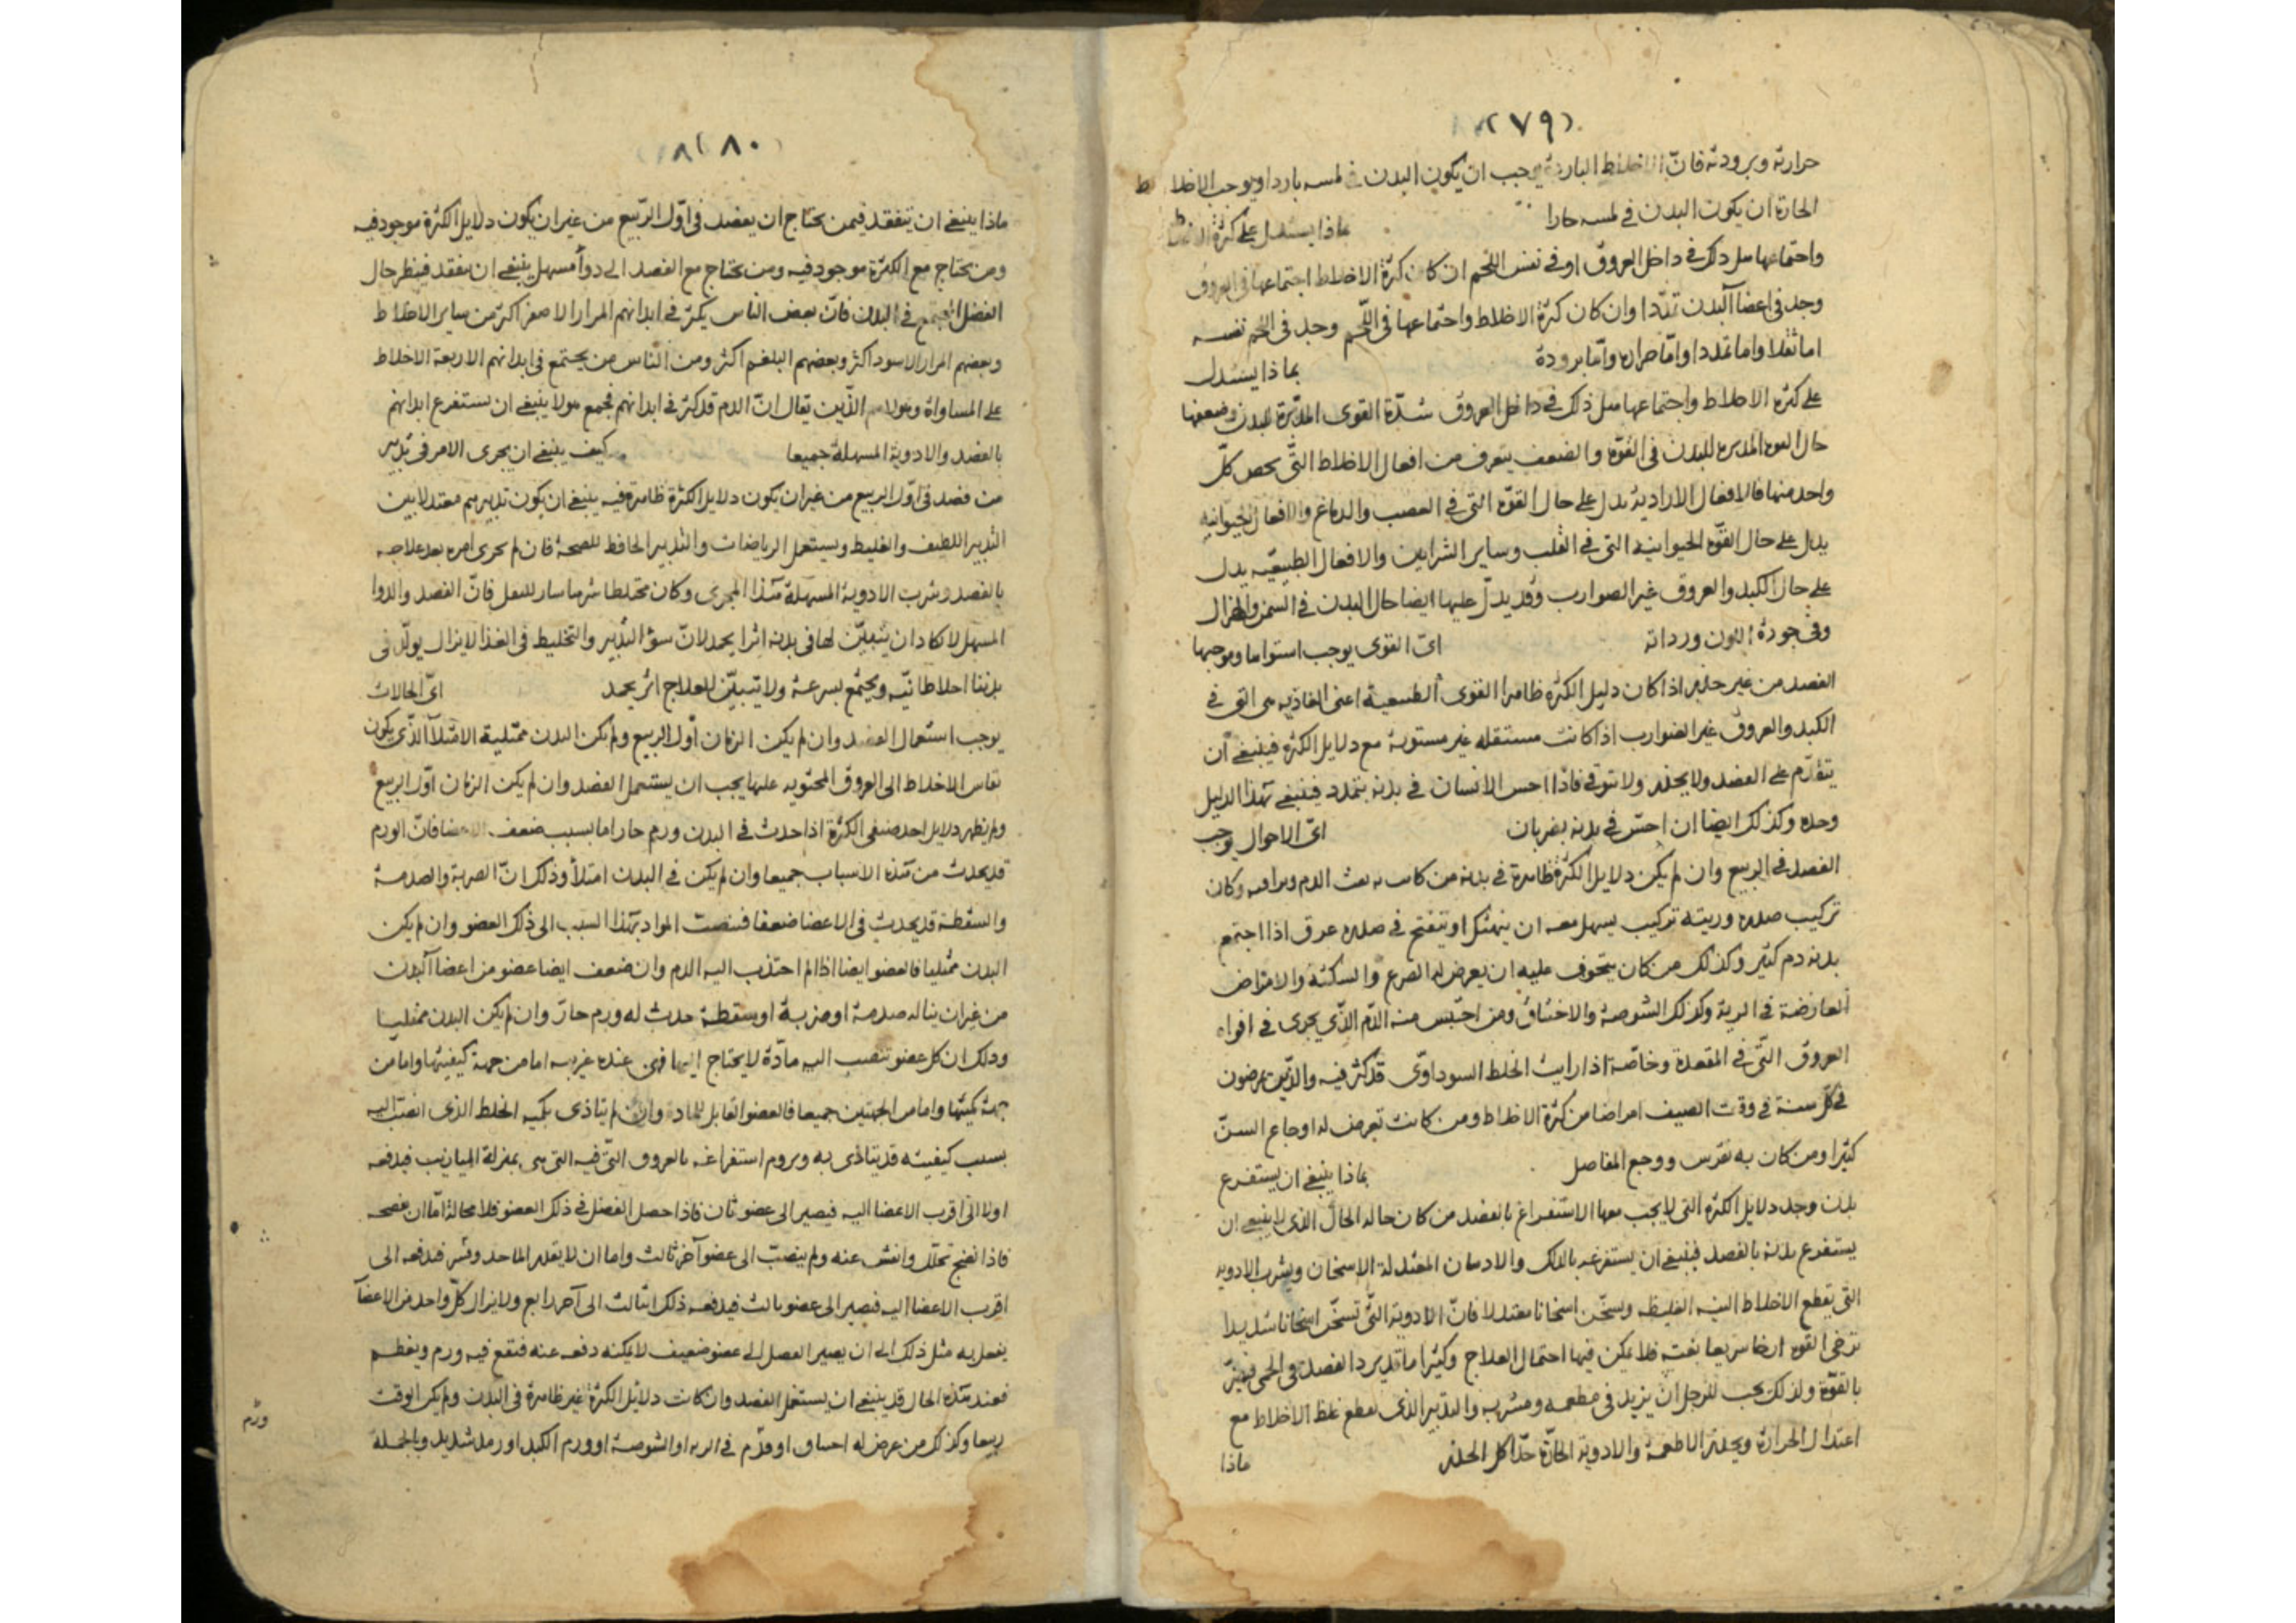 (٧٩)
حرارته وبرودته فانّ الاخلاط الباردة يوجب ان يكون البدن فى لمسه باردا ويوجب الاخلاط
الحارة ان يكون البدن فى لمسه حارا بماذا يستدل على كثرة الاخلاط
واجتماعها مثل ذلك فى داخل العروق او فى نفس اللحم ان كان كثرة الاخلاط اجتماعها فى العروق
وجد فى اعضآ البدن تمددا وان كان كثرة الاخلاط واجتماعها فى اللحم وجد فى اللحم نفسه
اما ثقلا واما تمددا وامّا حرارة وامّا برودة بماذا يستدل
على كثرة الاخلاط واجتماعها مثل ذلك فى داخل العروق شدّة القوى المدبّرة للبدن وضعفها
حال القوة المدبره للبدن فى القوّة والضعف يتعرف من افعال الاخلاط التّى يخص كلّ
واحد منها فالافعال الارادية يدل على حال القوّة التى فى العصب والدماغ والافعال الحيوانيه
يدل على حال القوّة الحيوانية التى فى القلب وساير الشرايين والافعال الطبيعيّه يدل
على حال الكبد والعروق غير الضوارب وقد يدلّ عليها ايضا حال البدن فى السمن والهزال
وفى جودة اللون وردائه اىّ القوى يوجب استواها وموجبها
الفصد من غير حذير اذا كان دليل الكثرة ظاهرا القوى الطبيعية اعنى الغاذيه هى التى فى
الكبد والعروق غير الضوارب اذا كانت مستقله غير مستوية مع دلايل الكثرة فينبغى ان
يتقدّم على الفصد ولا يحذر ولا يتوقى فاذا احس الانسان فى بدنه بتمدد فينبغى بهذا الدليل
وحده وكذلك ايضا ان احسّ فى بدنه بضربان اىّ الاحوال يوجب
الفصد فى الربيع وان لم يكن دلايل الكثرة ظاهرة فى بدنه من كان به نفث الدم وكان
تركيب صدره وريته تركيب يسهل معه ان ينهتك او ينفتح فى صدره عرق اذا اجتمع
بدنه دم كثير وكذلك من كان يتخوف عليه ان يعرض له الصرع والسكتة والامراض
العارضة فى الرية وكذلك الشوصة والاختناق ومن احتبس منه الدّم الذّي يجرى فى افواه
العروق التّى فى المقعدة وخاصّة اذا رايت الخلط السوداوّى قد كثر فيه والذّين يمرضون
فى كلّ سنة فى وقت الصيف امراضا من كثرة الاخلاط ومن كانت تعرض له اوجاع السنّ
كثيرا ومن كان به نقرس ووجع المفاصل بماذا ينبغى ان يستفرغ
بدن وجد دلايل الكثرة التى لا يجب معها الاستفراغ بالفصد من كان حاله الحال الذى لا ينبغى ان
يستفرغ بدنه بالفصد فينبغى ان يستفرغه بالدلك والادهان المعتدلة الاسخان ويشرب الادويه
التى تقطع الاخلاط النيه الغليظه ويسخن اسخانا معتدلا فانّ الادوية التّى تسخّن اسخانا شديدا
ترخى القوه ارخا سريعا بغتة فلا يمكن فيها احتمال العلاج وكثيرا ما الفصد فى الحمى
بالقوّة ولذلك يجب للرجل ان يزيد فى مطعمه ومشربه والتدبير الذى يقطع غلظ الاخلاط مع
اعتدال الحرارة ويحذر الاطعمة والادوية الحارّة جدّا كل الحذر ماذا
٨٠
ماذا ينبغى ان يتفقد فيمن يحتاج ان يفصد فى اوّل الربيع من غير ان يكون دلايل الكثرة موجود فيه
ومن يحتاج مع الكثرة موجود فيه ومن يحتاج مع الفصد الى دوآ مسهل ينبغى ان يتفقد فينظر حال
الفضل المجتمع فى البدن فانّ بعض الناس يكثر فى ابدانهم المرار الاصفر اكثر من ساير الاخلاط
وبعضهم المرار الاسود اكثر وبعضهم البلغم اكثر ومن الناس من يجتمع فى ابدانهم الاربعة الاخلاط
على المساواة وهولا هم الذّين يقال انّ الدم قد كثر فى ابدانهم فجمع هولا ينبغى ان يستفرغ ابدانهم
بالفصد والادوية المسهلة جميعا كيف ينبغى ان يجرى الامر فى تدبير
من فصد فى اوّل الربيع من غير ان يكون دلايل الكثرة ظاهرة فيه ينبغى ان يكون تدبيرهم معتدلا بين
التدبير اللطيف والغليظ ويستعمل الرياضات والتدبير الحافظ للصحة فان لم يجرى امره بعد علاجه
بالفصد وشرب الادوية المسهلة هذا المجرى وكان مختلطا فانّ الفصد والدوا
المسهل لا كاد ان يتبيّن لها فى بدنه اثرا يحمد لانّ سوّ التدبير والتخليط فى الغذا لا يزال يولّد فى
بدننا اخلاطا نيّه ويجتمع بسرعة ولا تتبيّن للعلاج اثر يحمد اىّ الحالات
يوجب استعمال الفصد وان لم يكن الزمان اوّل الربيع ولم يكن البدن ممتلية الامتلآ الذّى يكون
بقاس الاخلاط الى العروق المحتويه عليها يجب ان يستعمل الفصد وان لم يكن الزمان اوّل الربيع
ولم يظهر دلايل احد صنفى الكثرة اذا حدث فى البدن ورم حار اما بسبب ضعف الاعضا فانّ الورم
قد يحدث من هذه الاسباب جميعا وان لم يكن فى البدن امتلأ وذلك انّ الضربة والصدمة
والسقطة قد يحدث فى الاعضا ضعفا فتنصبّ المواد بهذا السبب الى ذلك العضو وان لم يكن
البدن ممتليا فالعضو ايضا اذا الم اجتذب اليه الدم وان ضعف ايضا عضو من اعضآ البدن
من غير ان يناله صدمة او ضربة او سقطة حدث له ورم حارّ وان لم يكن البدن ممتليا
وذلك ان كل عضو تنصب اليه مآدّة لا يحتاج اليها فهى عنده غريبه اما من جهة كيفيتها واما من
جهة كميتها واما من الجهتين جميعا فالعضو القابل للمادة وان لم يتاذى بكميه الخلط الذى انصبّ اليه
بسبب كيفيته قد يتاذى به ويروم استفراغه بالعروق التّى فيه التى هى بمنزلة الميازيب فيدفعه
اولا الى اقرب الاعضا اليه فيصير الى عضو ثان فاذا حصل الفضل فى ذلك العضو فلا محالة امّا ان ينضجه
فاذا نضج تحلّل وانفش عنه ولم ينصبّ الى عضو آخر ثالث واما ان لا يقدر فيدفعه الى
اقرب الاعضا اليه فيصير الى عضو ثالث فيدفعه ذلك الثالث الى آخر رابع ولا يزال كلّ واحد من الاعضآ
يفعل به مثل ذلك الى ان يصير الفضل الى عضو ضعيف لا يمكنه دفعه عنه فتقع فيه ورم ويعظم
فعند هذه الحال قد ينبغى ان يستعمل الفصد وان كانت دلايل الكثرة غير ظاهرة فى البدن ولم يكن الوقت
ربيعا وكذلك من عرض له اختناق او ورم فى الريه او الشوصة او ورم الكبد او رمد شديد وبالجملة
ورم